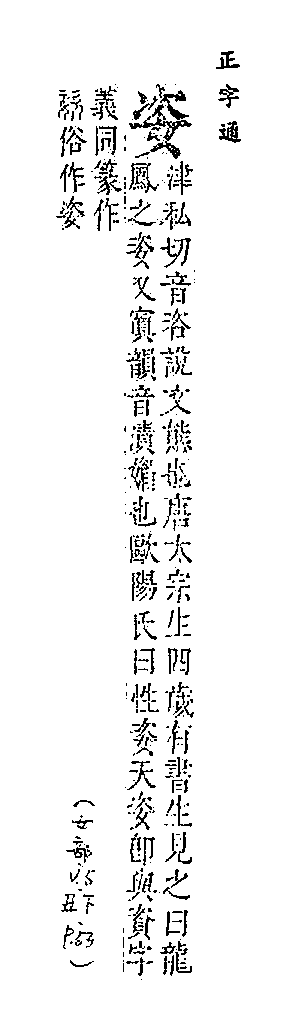 正字通
姿
津私切音咨說文態也唐太宗生四歲有書生見之曰龍
鳳之姿又寘韻音漬媚也歐陽氏曰性姿天姿卽與資字
義同篆作
俗作姿
(女部V.5
丑下
P.53)